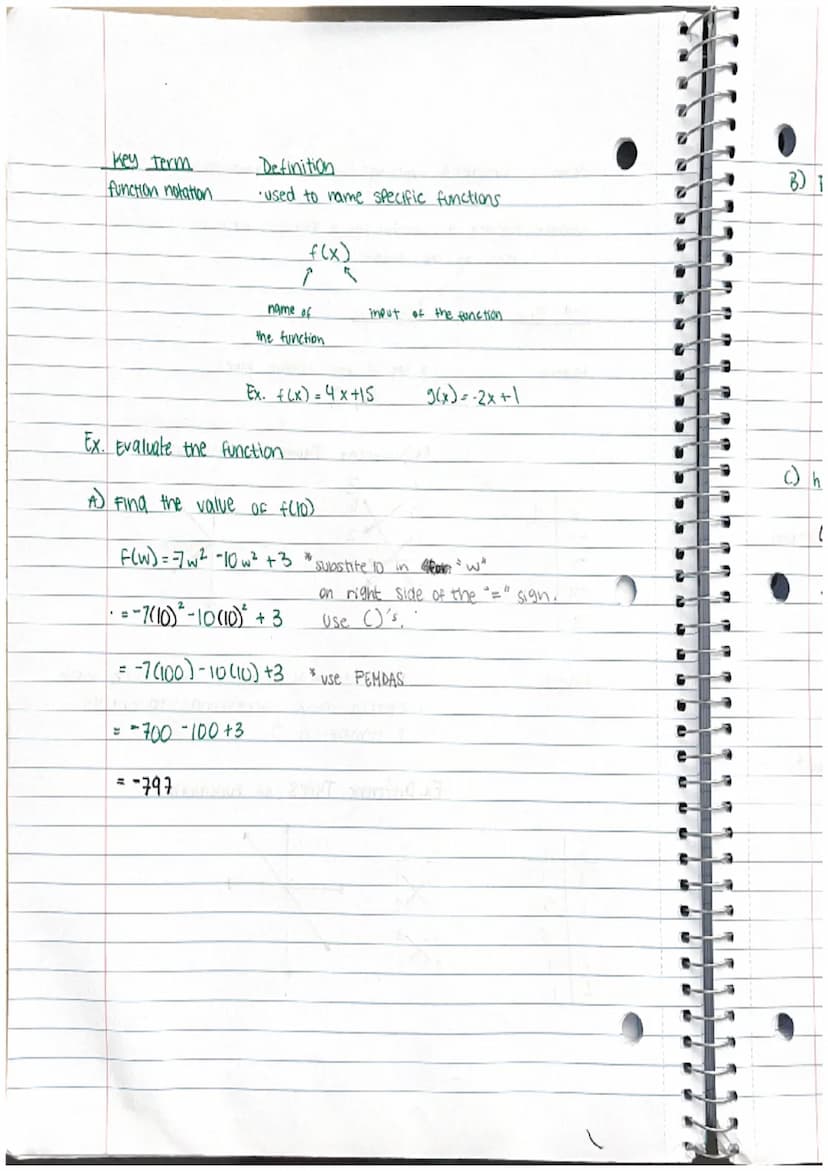 Key Term Definition
function notation ·used to name specific functions
f(x)
name of input of the function
the function
Ex. f(x) = 4x+15 g(x) = -2x+1
Ex. Evaluate the function
A) Find the value of f(10)
f(w) = -7w² -10w² + 3 * substite 10 in "w"
on right side of the "=" sign.
= -7(10)² - 10(10)² + 3 use ()'s.
= -7(100) - 10(10) + 3 * use PEMDAS
= -700 -100+3
= -797
B)
C) h